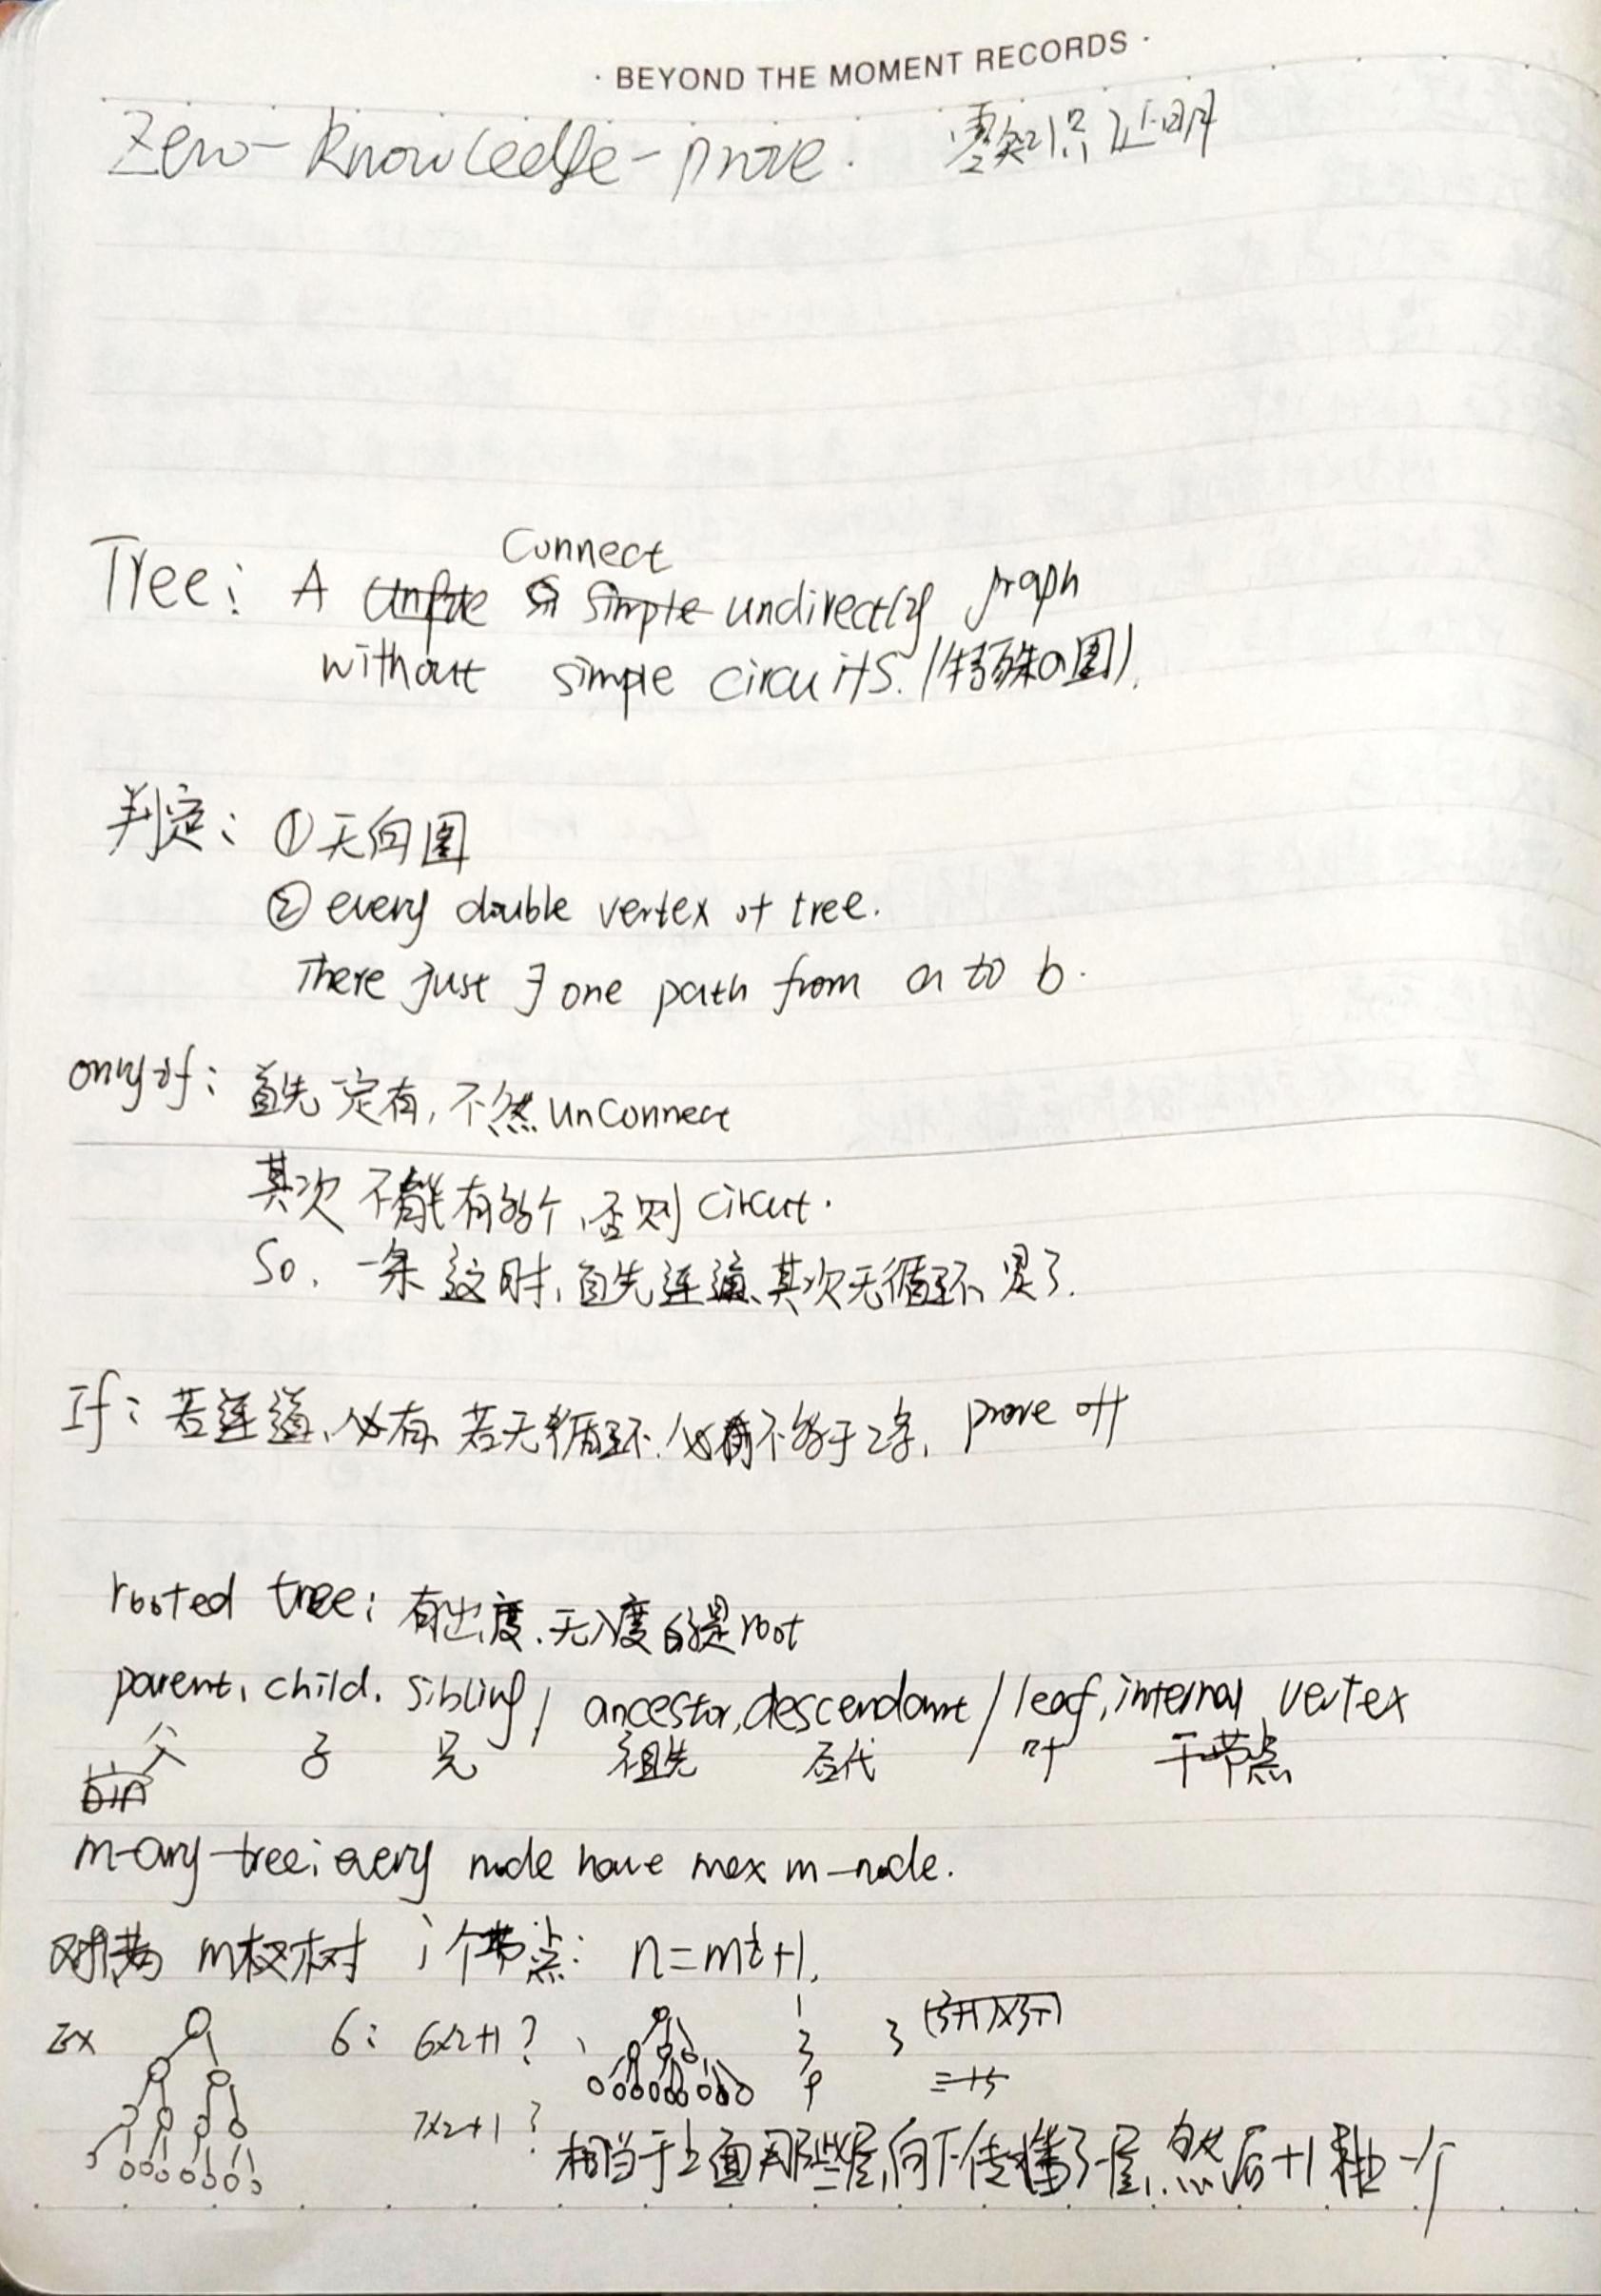 · BEYOND THE MOMENT RECORDS ·
Zero-knowledge-prove. 零知识证明
Connect
Tree: A undirectly graph
without simple circuits. (特殊の图).
判定: ①无向图
② every double vertex of tree.
There just ∃ one path from a to b.
only if: 首先定有, 不然 unconnect
其次 不能有多个, 否则 circut.
So. 一条 这时, 首先连通, 其次无循环, 是了.
If: 若连通, 必有, 若无循环, 必有不多于2条, prove off
rooted tree: 有出度, 无入度的是root
parent, child, sibling / ancestor, descendant / leaf, internal vertex
父 子 兄 祖先 后代 叶 干节点
m-ary-tree: every node have max m-node.
对满 m杈树 i个节点: n=mi+1.
Ex 6: 6x2+1? 1
3 3 (3+1)x3+1
9 =15
7x2+1?
相当于上面那些层,向下传播了一层,然后+1 一个